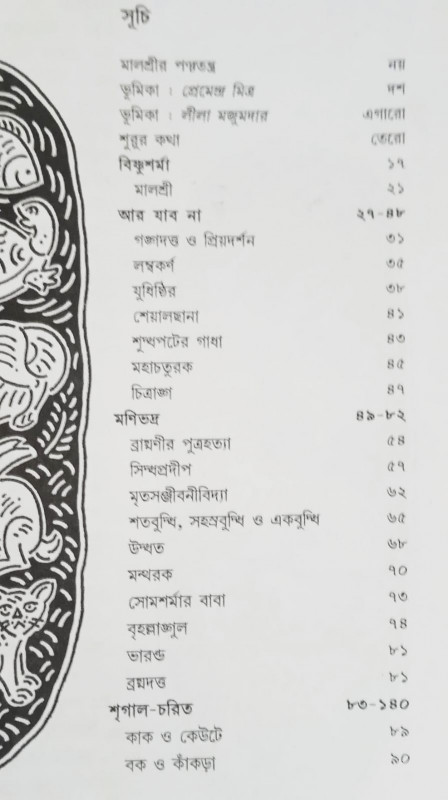 সূচি
মালশ্রীর পঞ্চতন্ত্র নয়
ভূমিকা : প্রেমেন্দ্র মিত্র দশ
ভূমিকা : লীলা মজুমদার এগারো
শুরুর কথা তেরো
বিষ্ণুশর্মা ১৭
মালশ্রী ২১
আর যাব না ২৭-৪৮
গঙ্গাদত্ত ও প্রিয়দর্শন ৩১
লম্বকর্ণ ৩৫
যুধিষ্ঠির ৩৮
শেয়ালছানা ৪১
শুদ্ধপটের গাধা ৪৩
মহাচতুরক ৪৫
চিত্রাঙ্গ ৪৭
মণিভদ্র ৪৯-৮২
ব্রাহ্মণীর পুত্রহত্যা ৫৪
সিদ্ধপ্রদীপ ৫৭
মৃতসঞ্জীবনীবিদ্যা ৬২
শতবুদ্ধি, সহস্রবুদ্ধি ও একবুদ্ধি ৬৫
উদ্ধত ৬৮
মন্থরক ৭০
সোমশর্মার বাবা ৭৩
বৃহল্লাঙ্গুল ৭৪
ভারন্ড ৮১
ব্রহ্মদত্ত ৮১
শৃগাল-চরিত ৮৩-১৪০
কাক ও কেউটে ৮৯
বক ও কাঁকড়া ৯০